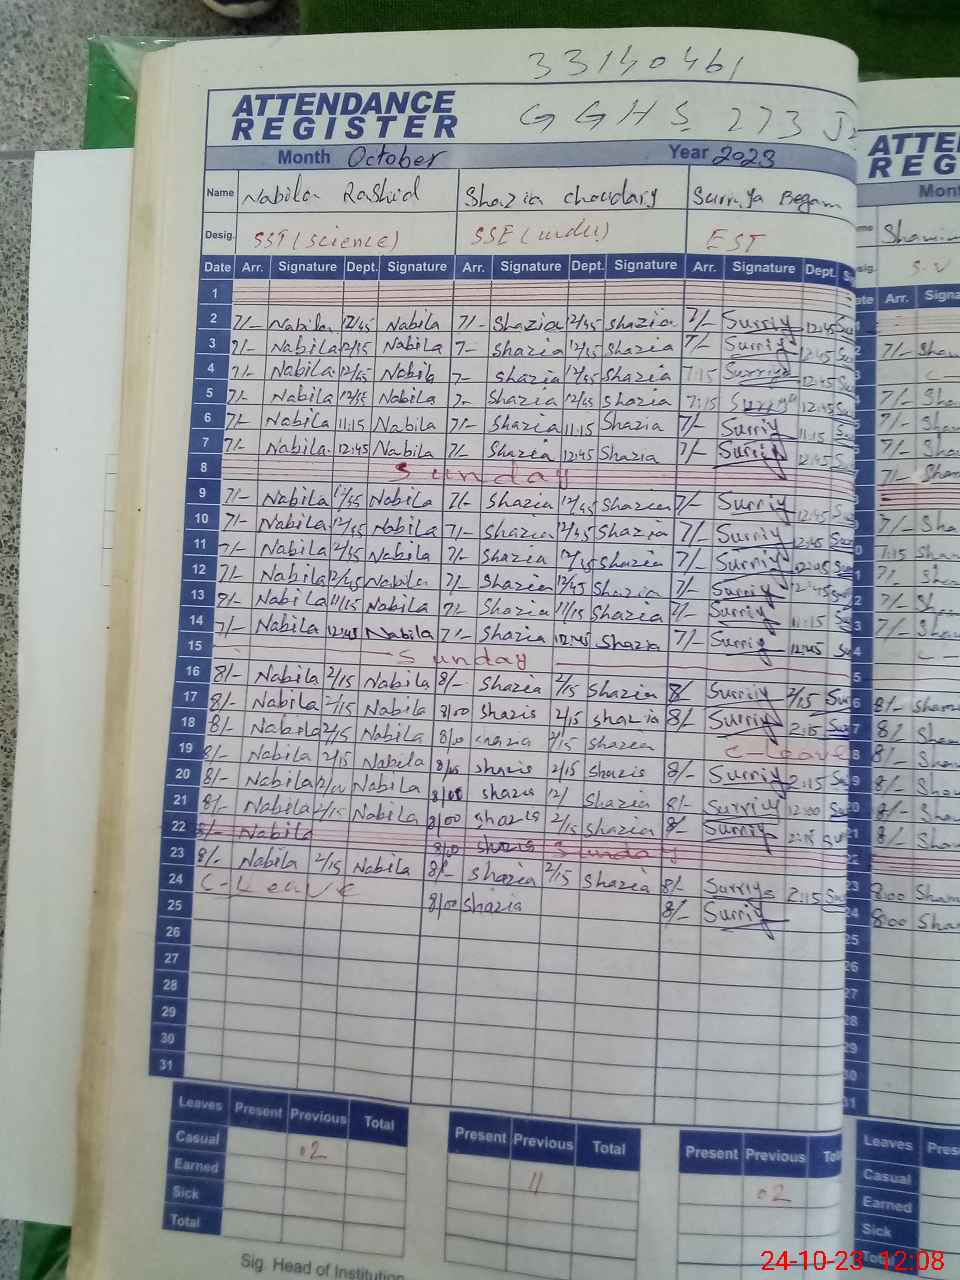 33140461
ATTENDANCE REGISTER
GGHS 273
ATTE
REG
Month October Year 2023
Mont
Name Nabila Rashid Shazia choudary Surriya Begam
Desig. SST (Science) SSE (urdu) EST
Date Arr. Signature Dept. Signature Arr. Signature Dept. Signature Arr. Signature Dept.
Arr. Signa
1
2 7/- Nabila 12/45 Nabila 7/- Shazia 12/45 Shazia 7/- Surriy 12:45
3 7/- Nabila 12/45 Nabila 7- Shazia 12/45 Shazia 7/- Surriy 12:45
4 7/- Nabila 12/45 Nabila 7- Shazia 12/45 Shazia 7:15 Surriya 12:45
5 7/- Nabila 12/45 Nabila 7- Shazia 12/45 Shazia 7:15 Surriya 12:45
6 7/- Nabila 11:15 Nabila 7/- Shazia 11:15 Shazia 7/- Surriy 11:15
7 7/- Nabila 12:45 Nabila 7/- Shazia 12:45 Shazia 7/- Surriy 12:45
8 Sunday
9 7/- Nabila Nabila 7/- Shazia 12/45 Shazia 7/- Surriy 12:45
10 7/- Nabila 12/45 Nabila 7/- Shazia 12/45 Shazia 7/- Surriy 12:45
11 7/- Nabila 12/45 Nabila 7/- Shazia 12/45 Shazia 7/- Surriy 12:45
12 7/- Nabila 12/45 Nabila 7/- Shazia 12/45 Shazia 7/- Surriy 12:45
13 Nabila 11/15 Nabila 7/- Shazia 11/15 Shazia 7/- Surriy 11:15
14 7/- Nabila 12:45 Nabila 7/- Shazia 12:45 Shazia 7/- Surriy 12:45
15 Sunday
16 8/- Nabila 2/15 Nabila 8/- Shazia 2/15 Shazia 8/- Surriy 2/15
17 8/- Nabila 2/15 Nabila 8/00 Shazia 2/15 Shazia 8/- Surriy 2:15
18 8/- Nabila 2/15 Nabila 8/00 Shazia 2/15 Shazia C-Leave
19 8/- Nabila 2/15 Nabila 8/00 Shazia 2/15 Shazia 8/- Surriy 2:15
20 8/- Nabila Nabila 8/00 Shazia 12/ Shazia 8/- Surriy 12:00
21 8/- Nabila 2/15 Nabila 8/00 Shazia 2/15 Shazia 8/- Surriy 2:15
22 8/- Nabila 8/00 Shazia Sunday
23 8/- Nabila 2/15 Nabila 8/- Shazia 2/15 Shazia 8/- Surriya 2:15
24 C-Leave 8/00 Shazia 8/- Surriy
25
26
27
28
29
30
31
Leaves Present Previous Total Present Previous Total Present Previous
Casual 02 11 02
Earned
Sick
Total
Sig. Head of Institution
Leaves Pres
Casual
Earned
Sick
Total
24-10-23 12:08